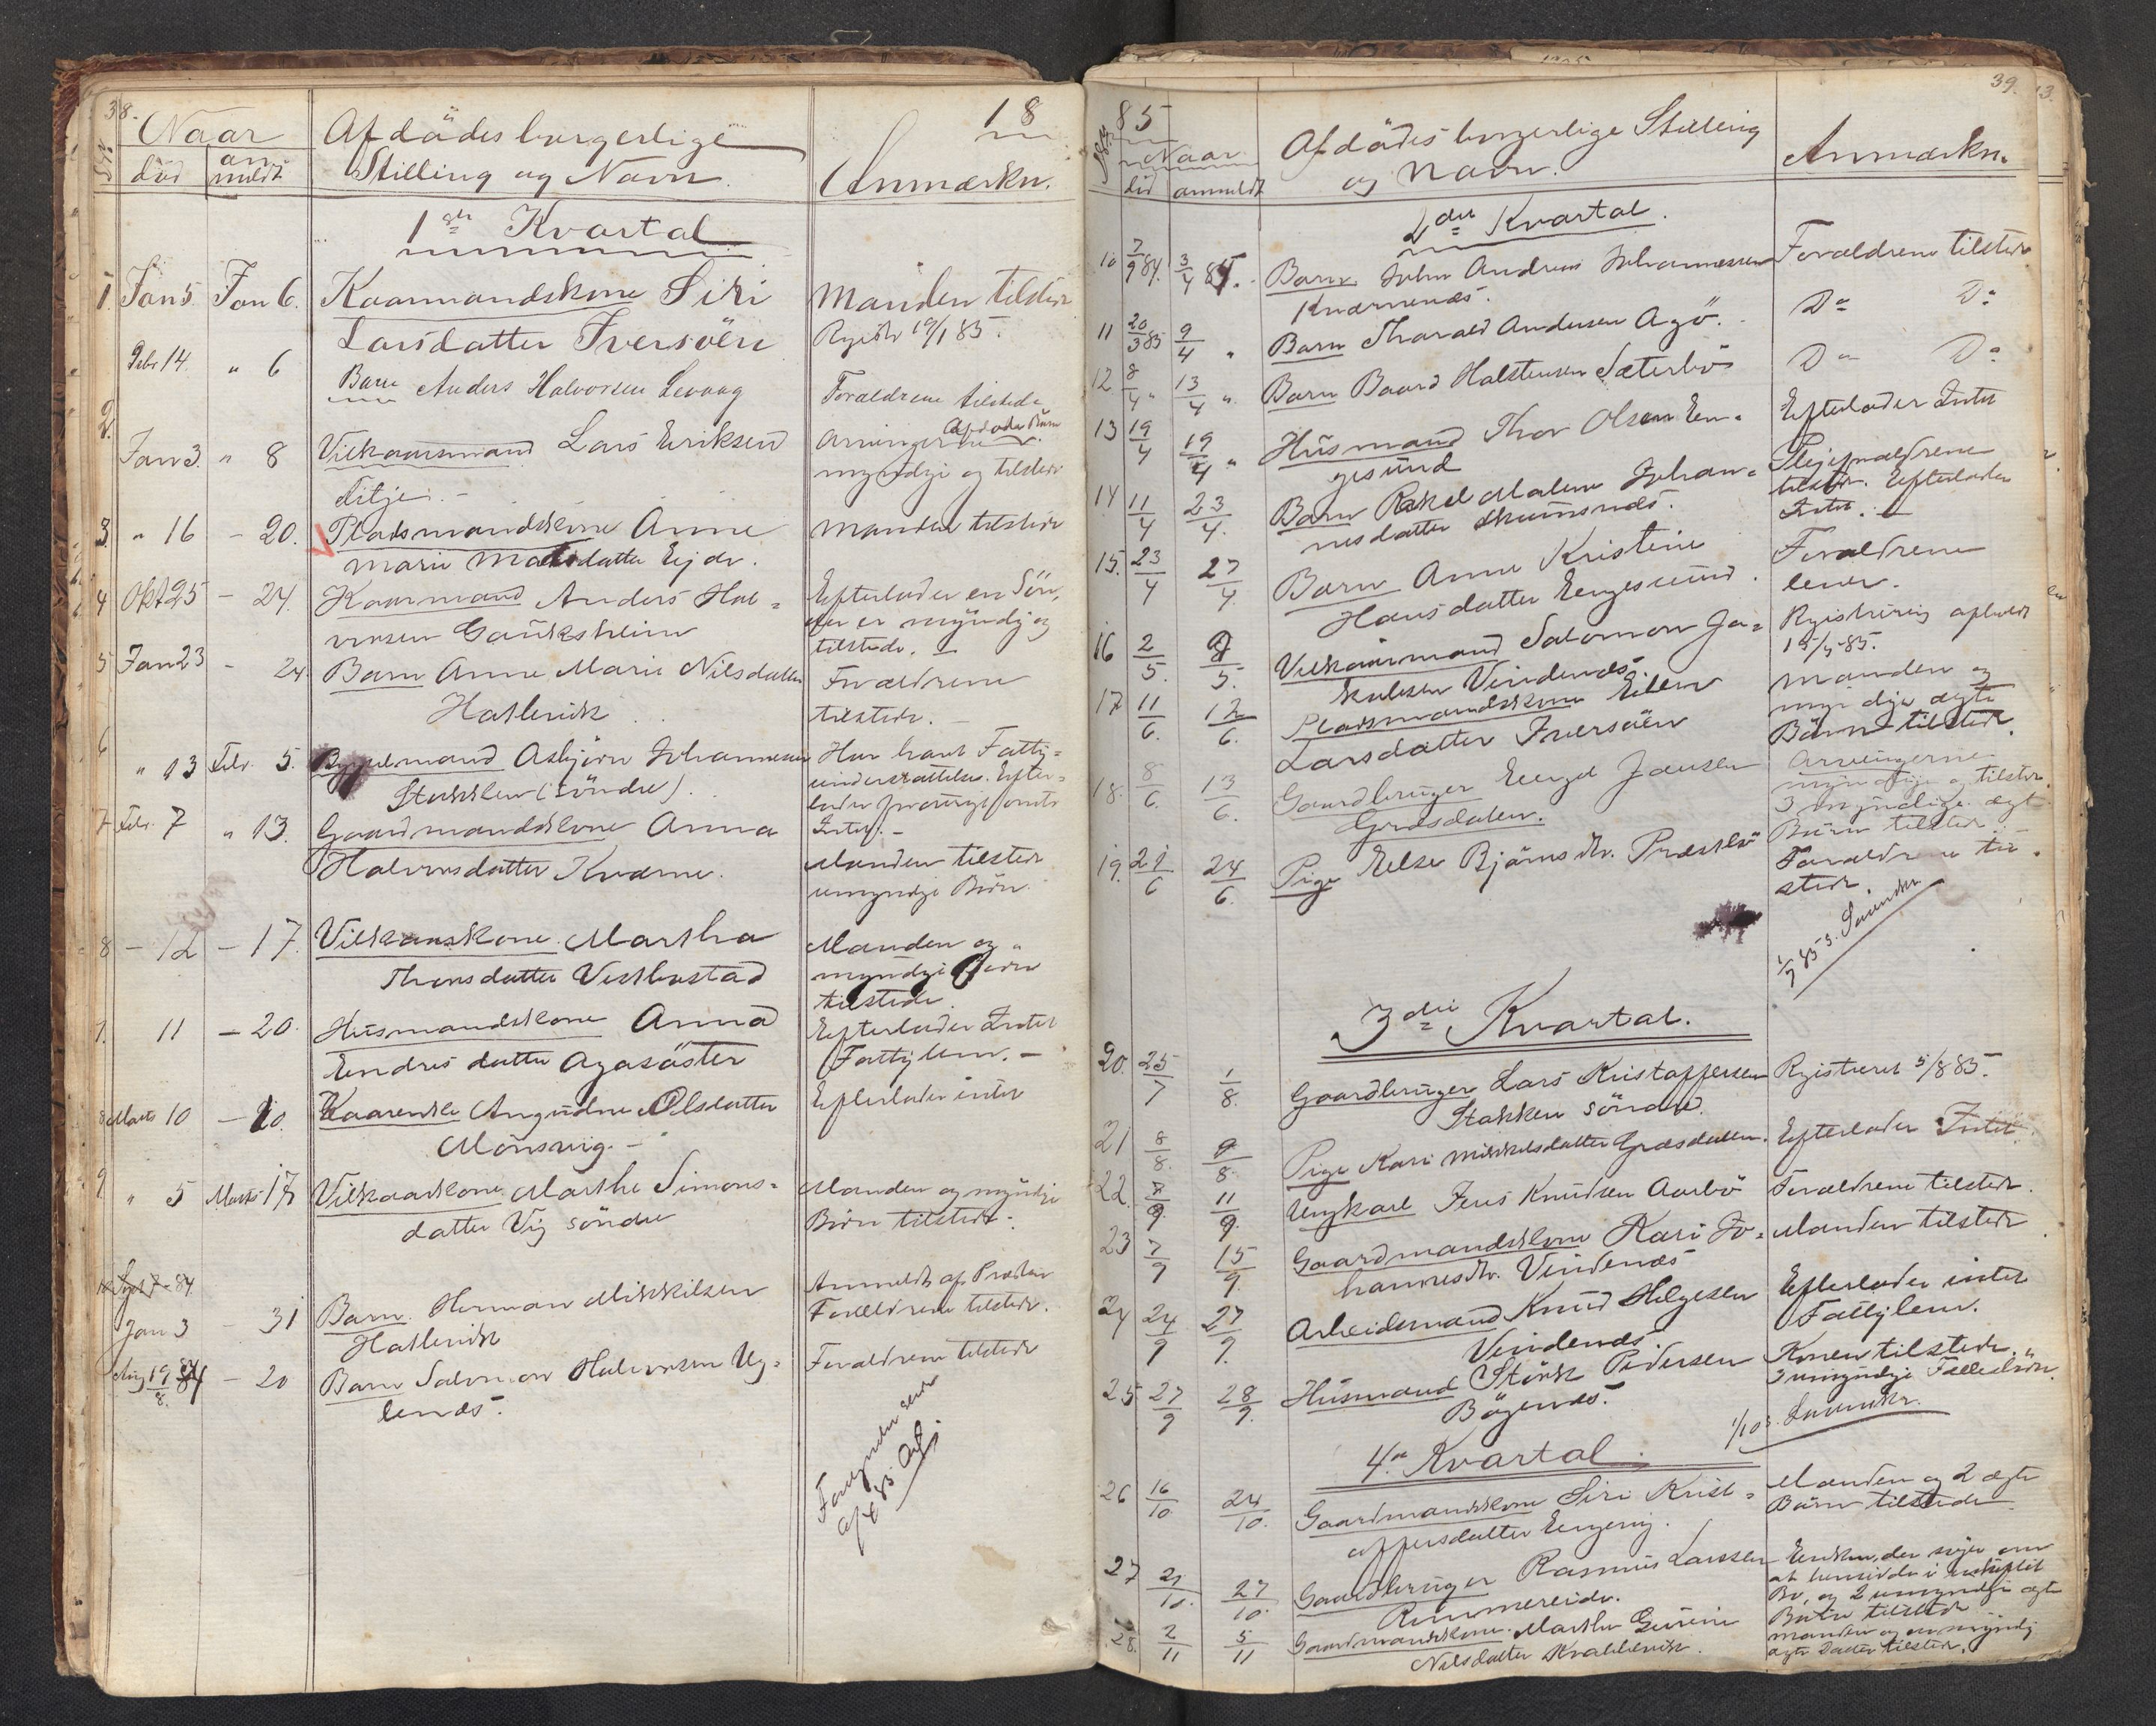 38.
18
Naar
Afdødes borgerlige
død
an
meldt
Stilling og Navn.
Anmærkn.
1ste Kvartal
1. Jan 5. Jan 6. Kaarmandskone Siri Manden tilstede
Larsdatter Iversöen Regist. 19/1 85.
Febr 14 " 6 Barn Anders Halvorsen Forældrene tilstede
2.
Jan 3. " 8 Vilkaarsmand Lars Eriksen Arvingerne
myndige og tilstede
3. " 16 - 20. Pladsmandskone Anne Manden tilstede
Marie datter Ejde.
4 Okt 25 - 24. Kaarmand Anders Hal= Efterlader en Sön,
vorsen der er myndig og
tilstede.
5 Jan 23 - 24 Barn Anne Marie Nilsdatter Forældrene
Hatlevik tilstede.
6 " 13 Febr. 5. Asbjörn Johannessen Har havt Fattig=
Stokken (söndre). understöttelse. Efter=
lader
7 Febr. 7 " 13. Gaardmandskone Anna Intet. -
Halvorsdatter Kværne. Manden tilstede
umyndige Börn.
8 - 12 - 17. Vilkaarskone Martha Manden og
Thorsdatter Vestbostad myndige Börn
tilstede.
11 - 20. Husmandskone Anna Efterlader Intet
Endresdatter Agasöster Fattiglem. -
Marts 10 - 20. Olsdatter Efterlader intet
Mönsvig. -
9 " 5 Marts 17 Vilkaarskone Marthe Simons= Manden og myndige
datter Vig söndre Börn tilstede.
Anmeldt af Præsten
Jan 3 - 31 Barn Herman Mikkelsen Forældrene tilstede.
Hatlevik
Aug 19/8 84 - 20 Barn Salomon Halvorsen Ug= Forældrene tilstede
lenæs.
39.
85
Naar
Afdødes borgerlige Stilling
og Navn.
Anmærkn.
död anmeldt
2det Kvartal.
10 7/9 84. 3/4 85. Barn John Andreas Johannessen Forældrene tilstede
Kværnenæs.
11 20/3 85 9/4 " Barn Thorald Andersen Agö. Do Do
12 8/4 " 13/4 " Barn Baard Halstensen Sæterbö Do Do
13 19/4 19/4 " Husmand Thor Olsen En= Efterlader Intet
gesund
14 11/4 23/4. Barn Rakel Malene Johan= Plejeforældrene
nesdatter Skumsnæs. tilstede. Efterlader
Intet.
15. 23/4 27/4. Barn Anne Kristine Forældrene
Hansdatter Engesund. lever.
16 2/5. 9/5. Vilkaarmand Salomon Ja= Registrering afholdt
kobsen Vindenæs. 15/5 85.
17 11/6. 12/6. Pladsmandskone Ellen Manden og
Larsdatter Iversöen myndige ægte
Börn tilstede.
18. 8/6. 13/6. Gaardbruger Jansen Arvingerne
Græsdalen. myndige og tilstede.
3 myndige ægte
Börn tilstede.
19. 21/6 24/6. Pige Else Bjärnsdtr. Præstbö Forældrene til=
stede.
3die Kvartal.
20. 25/7 1/8. Gaardbruger Lars Kristoffersen Registreret 5/8 85.
Stokken söndre.
21 8/8. 9/8. Pige Kari Mikkelsdatter Græsdalen. Efterlader Intet
22. 7/9. 11/9. Ungkarl Jens Knudsen Aarbö Forældrene tilstede.
23 7/9 15/9. Gaardmandskone Kari Jo= Manden tilstede
hannesdtr. Vindenæs
24 24/9 27/9. Arbeidsmand Knud Helgesen Efterlader intet
Vindenæs. Fattiglem.
25 27/9 28/9. Husmand Störk Pedersen Konen tilstede.
Bögenæs. umyndige Fællesbörn.
4de Kvartal.
26 16/10 24/10. Gaardmandskone Siri Krist= Manden og 2 ægte
offersdatter Börn tilstede
27 21/10. 27/10. Gaardbruger Rasmus Larssen Enken, der siger om
Rimmereide. at hensidde i uskiftet
Bo, og 2 umyndige ægte
Börn tilstede
28. 2/11 5/11 Gaardmandskone Marthe Manden og en myndig
Nilsdatter ægte Datter tilstede.